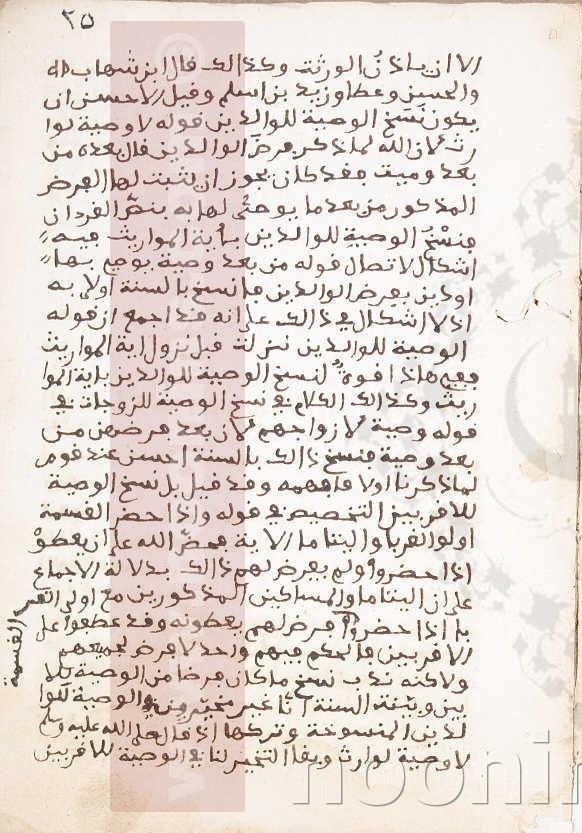 ٢٥
الا ان ياذن الورثة وكذالك قال ابن شهاب
والحسن وعطا وزيد بن اسلم وفيل الاحسن ان
يكون نسخ الوصية للوالدين قوله لا وصية لوا
رث لان الله لما ذكر فرض الوالدين قال بعده من
بعد وصية فقد كان يجوز ان تثبت لها الفرض
المذكور من بعد ما يوحى لها به بنص القرءان
فنسخ الوصية للوالدين بأية المواريث فيه
اشكال لاتصال قوله من بعد وصية يوصى بها
او دين بفرض الوالدين فانسخ بالسنة اولى به
اذ لا اشكال في ذالك على انه قد اجمع ان قوله
الوصية للوالدين نزلت قبل نزول اية المواريث
ففي هاذا قوة لنسخ الوصية للوالدين باية الموا
ريث وكذالك الكلام في نسخ الوصية للزوجات في
قوله وصية لازواجهم لان بعد فرضهن من
بعد وصية فنسخ ذالك بالسنة احسن عند قوم
لما ذكرنا اولا فافهمه وقد قيل بل نسخ الوصية
للاقربين التخصيص في قوله واذا حضر القسمة
اولوا القربا واليتاما الاية فحض الله على ان يعطوا
اذا حضروا ولم يفرض لهم ذالك بدلالة الاجماع
على ان اليتاما والمساكين المذكورين مع اولى القر
با اذا حضروا لا فرض لهم يعطونه وقد عطفوا على
الاقربين فالحكم فيهم واحد لا فرض لجميعهم
القسمة
ولاكنه ندب نسخ ما كان فرضا من الوصية للا
بين وبينة السنة انا غير مخيرين في الوصية للوا
لدين المنسوخة وتركها اذ قال صلى الله عليه وسلم
لا وصية لوارث وبقا التخيير لنا في الوصية للاقربين
noonin